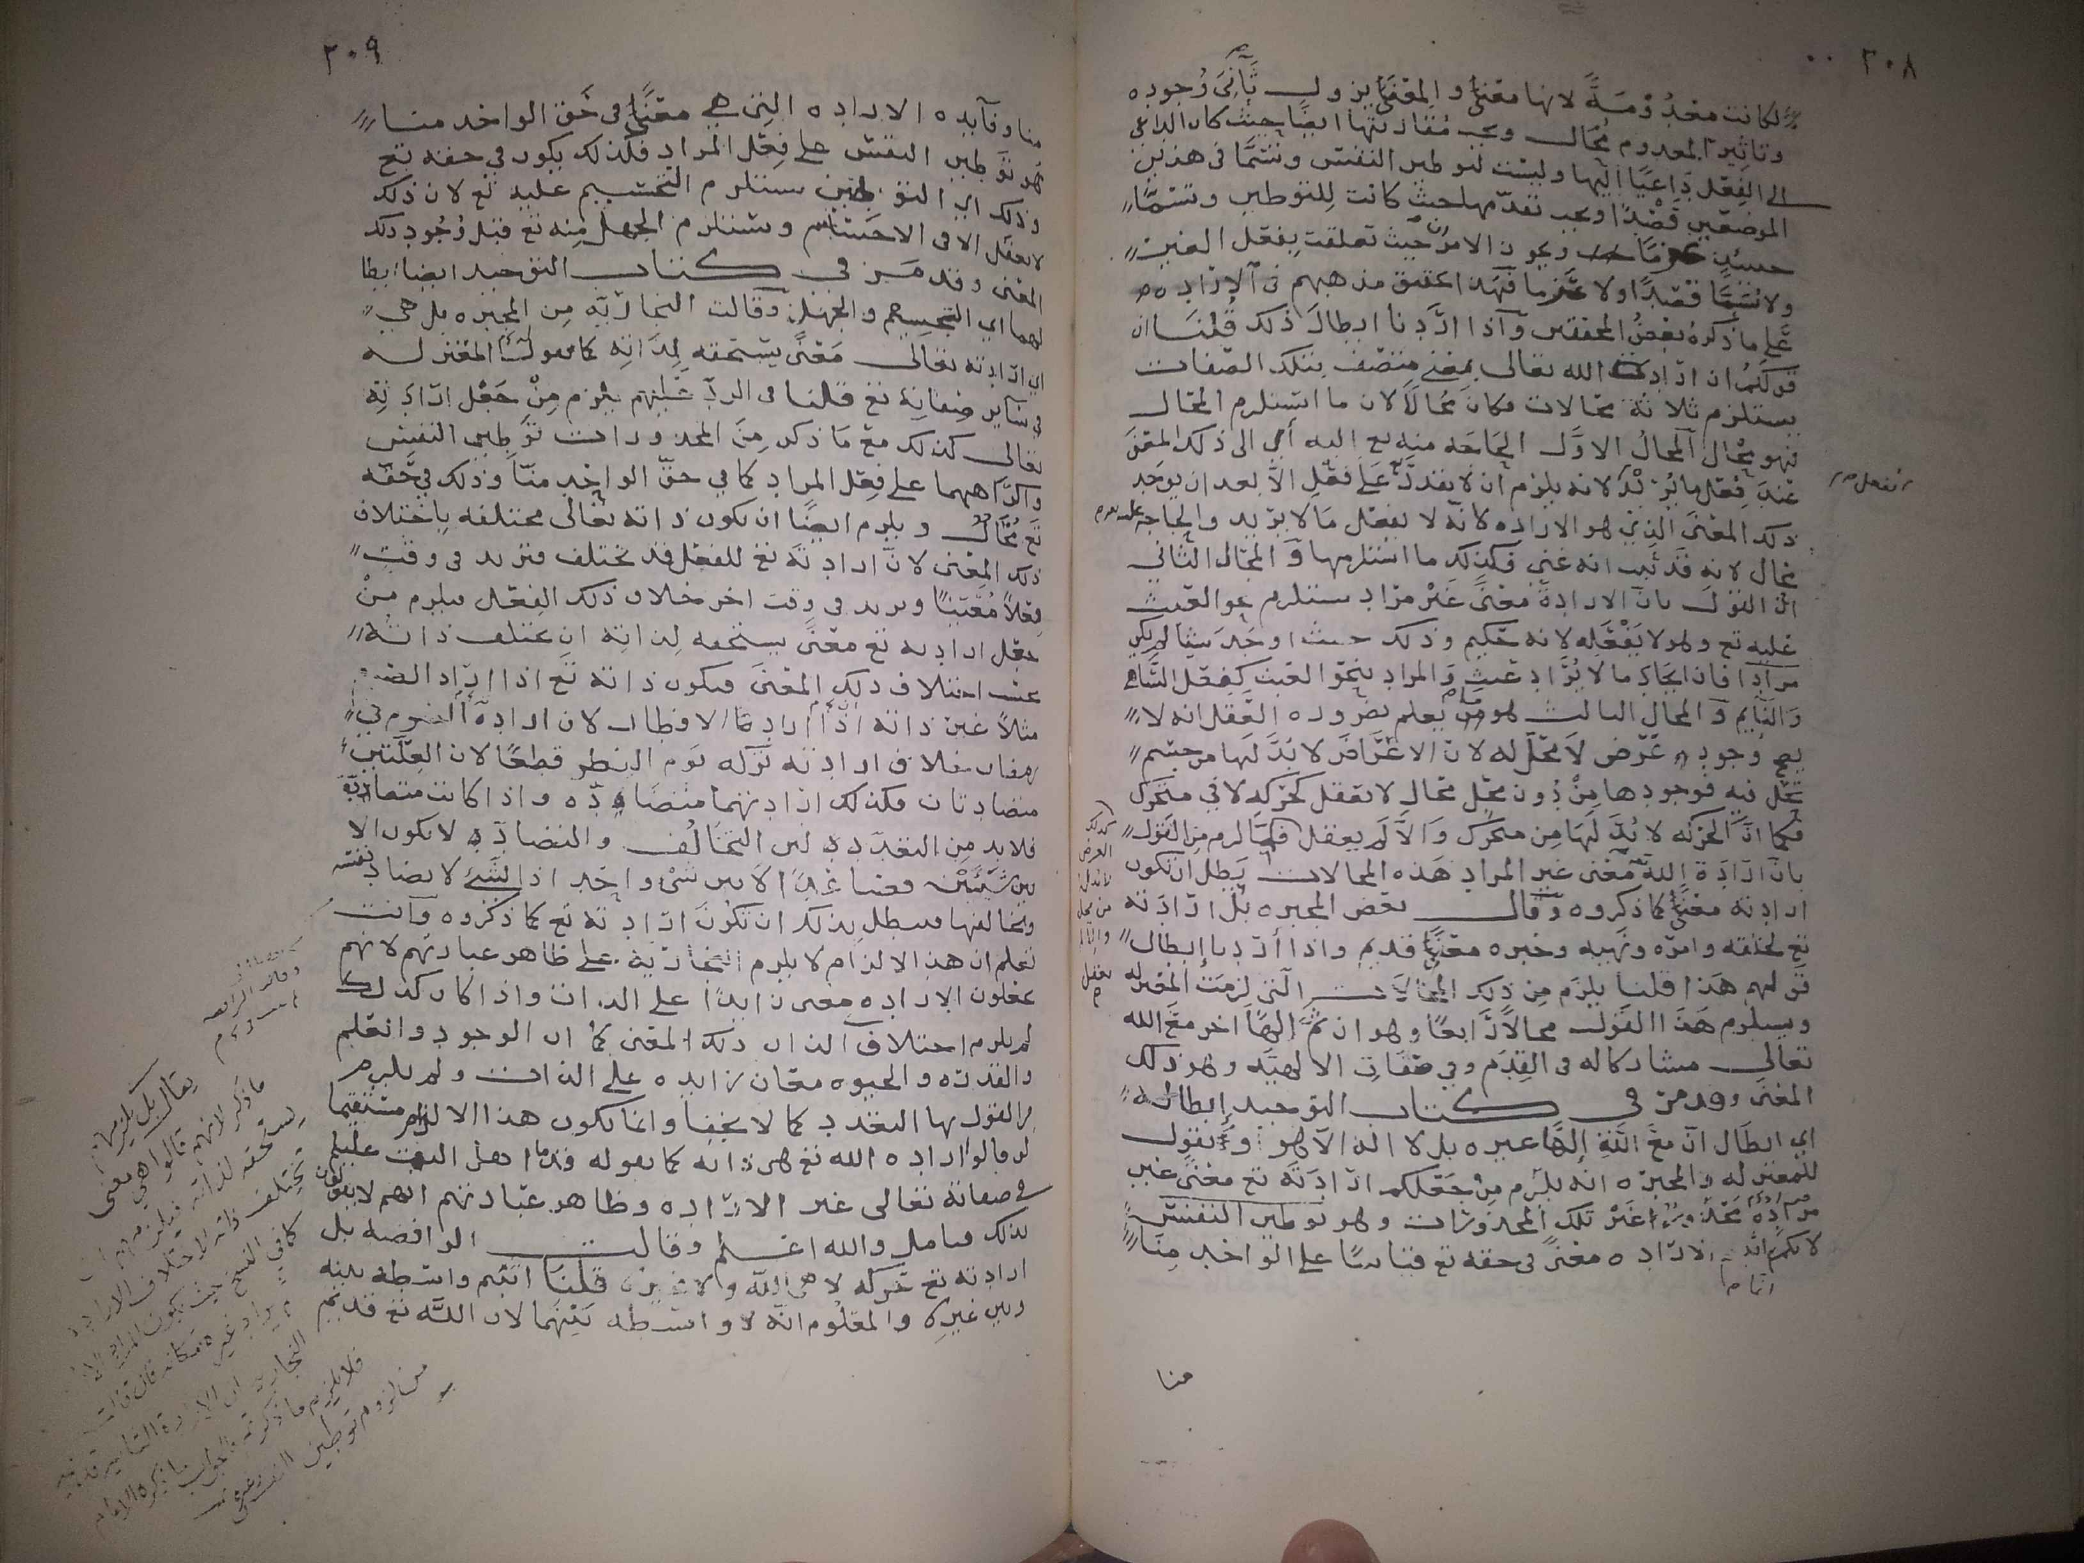 ٢٠٨
لكانت معدومة لانها معنى والمعنى يزول تأنى وجوده
وتاثير المعدوم محال ويجب مقارنتها ايضًا حيث كان الداعي
الى الفعل داعيًا اليها وليست لتوطين النفس وتسمّا في هذين
الموضعين قصدًا ويجب تقدّمها حيث كانت للتوطين وتسمّا
حينئذ عزمًا ويجوز الامران حيث تعلقت بفعل الغير
ولا تسمّا قصدًا ولا عزما فهذا تحقيق مذهبهم في الارادة
على ما ذكره بعض المحققين واذا اردنا ابطال ذلك قلنا ان
قولكم ان ارادة الله تعالى بمعنى متصف بتلك الصفات
يستلزم ثلاثة محالات فكان محالًا لان ما استلزم المحال
فهو محال المحال الاول الحاجة منه تع اليه أي الى ذلك المعنى
عند فعل ما يريد لانه يلزم ان لا يقدر على فعل الا بعد ان يوجد
ذلك المعنى الذي هو الارادة لانه لا يفعل ما لا يريد والحاجة عليه
محال لانه قد ثبت انه غني فكذلك ما استلزمها و المحال الثاني
ان القول بان الارادة معنى غير مراد يستلزم نحو العبث
عليه تع وهو لا يفعله لانه حكيم وذلك حيث اوجد شيئا لم يكن
مرادًا فان ايجاد ما لا يراد عبث والمراد بنحو العبث كفعل الساهي
والنايم و المحال الثالث هو من يعلم بضرورة العقل انه لا
يصح وجود عرض لا محل له لان الاعراض لا بد لها من جسم
تحل فيه فوجودها من دون محل محال لا يعقل كحركة لا في متحرك
فكما ان الحركة لا بد لها من متحرك والا لم يعقل فلما لزم من القول
بان ارادة الله معنى غير المراد هذه المحالات بطل ان تكون
ارادته معنى كما ذكروه وقال بعض المجبرة بل ارادته
تع لخلقه وامره ونهيه وخبره معنى قديم واذا أردنا إبطال
قولهم هذا قلنا يلزم من ذلك المحالات التي لزمت المعتزله
ويستلزم هذا القول محالًا رابعًا وهو ان ثمَّ إلهًا اخر مع الله
تعالى مشاركا له في القدم وفي صفات الالهيّه وهو ذلك
المعنى وقد مرّ في كتاب التوحيد إبطاله
اي ابطال ان مع الله إلهًا غيره بل لا اله الا هو ونقول
للمعتزله والمجبره انه يلزم من جعلكم ارادته تع معنى غير
مراده محذورًا غير تلك المحذورات وهو توطين النفس
لانكم انما الارادة معنى في حقه تع قياسًا على الواحد منا
منا
٢٠٩
منا وفايدة الارادة التي هي معنى في حق الواحد منا
هو توطين النفس على فعل المراد فكذلك يكون في حقه تع
وذلك اي التوطين يستلزم التجسيم عليه تع لان ذلك
لا يعقل الا في الاجسام ويستلزم الجهل منه تع قبل وجود ذلك
المعنى وقد مرّ في كتاب التوحيد ايضا ابطا
لهما اي التجسيم والجهل وقالت النجارية من المجبره بل هي
اي ارادته تعالى معنى يستحقه لذاته كما تقوله المعتزله
في ساير صفاته تع قلنا في الرد عليهم يلزم من جعل ارادته
تعالى كذلك مع ما ذكر من المحذورات توطين النفس
واكراههما على فعل المراد كما في حق الواحد منّا وذلك في حقّه
تع محال ويلزم ايضًا ان يكون ذاته تعالى مختلفه باختلاف
ذلك المعنى لانّ ارادته تع للفعل قد تختلف فيريد في وقت
فعلًا معينًا ويريد في وقت اخر خلاف ذلك الفعل فيلزم من
جعل ارادته تع معنى يستحقه لذاته ان تختلف ذاته
بحسب اختلاف ذلك المعنى فيكون ذاته تع اذا اراد الصوم
مثلًا غير ذاته اذا اراد منا الافطار لان ارادة الصوم في
رمضان خلاف ارادته تركه يوم الفطر قطعًا لان الفعلين
متضادان فكذلك ارادتهما متضادّه واذا كانت متضادّة
فلا بد من التعدّد لان التخالف والتضادّ لا يكون الا
بين شيئين فصاعدًا لا بين شيء واحد اذ الشيء لا يضاد نفسه
ويخالفها فبطل بذلك ان تكون ارادته تع كما ذكروه وانت
تعلم ان هذا الالزام لا يلزم النجارية على ظاهر عبارتهم لانهم
يجعلون الارادة معنى زايدًا على الذات واذا كان كذلك
لم يلزم اختلاف الذات ذلك المعنى كما ان الوجود والعلم
والقدرة والحيوه معان زايدة على الذات ولم يلزم
من القول بها التعدد كما لا يخفا وانما يكون هذا الالزام مستقيما
لو قالوا ارادة الله تع هي ذاته كما يقوله قدما اهل البيت عليلم
في صفاته تعالى غير الارادة وظاهر عبارتهم انهم لا يقولون
بذلك فتامل والله اعلم وقالت الرافضه بل
ارادته تع حركه لا هي الله ولا غيره قلنا اثبتم واسطه بينه
وبين غيره والمعلوم انه لا واسطه بينهما لان الله تع قديم
يقال بل يلزمهم
ما ذكر لانهم قالوا هي معنى
يستحقه لذاته فيلزمهم ان
تختلف ذاته لاختلاف الارادة